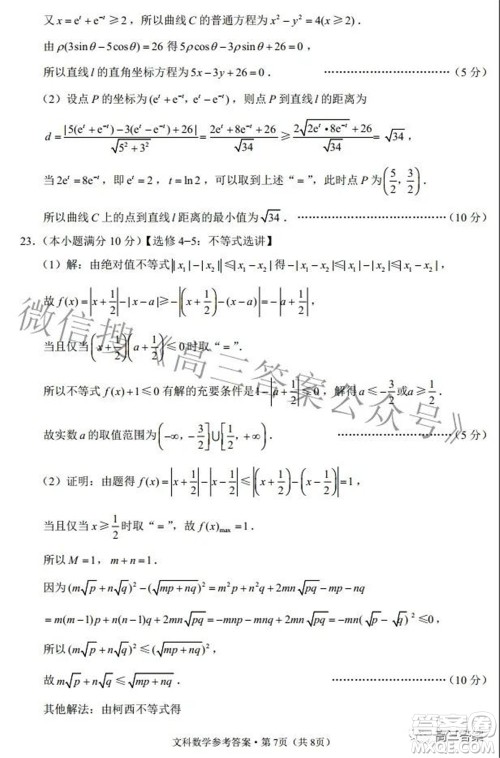 又 x = e^t + e^{-t} ≥ 2，所以曲线 C 的普通方程为 x² − y² = 4(x ≥ 2)．
由 ρ(3sinθ − 5cosθ) = 26 得 5ρcosθ − 3ρsinθ + 26 = 0，
所以直线 l 的直角坐标方程为 5x − 3y + 26 = 0． ……………………（5 分）
（2）设点 P 的坐标为 (e^t + e^{-t}, e^t − e^{-t})，则点 P 到直线 l 的距离为
d = |5(e^t + e^{-t}) − 3(e^t − e^{-t}) + 26| / √(5² + 3²) = (2e^t + 8e^{-t} + 26)/√34 ≥ (2√(2e^t•8e^{-t}) + 26)/√34 = √34，
当 2e^t = 8e^{-t}，即 e^t = 2，t = ln2，可以取到上述“=”，此时点 P 为 (5/2, 3/2)．
所以曲线 C 上的点到直线 l 距离的最小值为 √34． ……………………（10 分）
23．（本小题满分 10 分）【选修 4−5：不等式选讲】
（1）解：由绝对值不等式 ||x₁| − |x₂|| ≤ |x₁ − x₂| 得 −|x₁ − x₂| ≤ |x₁| − |x₂| ≤ |x₁ − x₂|，
故 f(x) = |x + 1/2| − |x − a| ≥ −|(x + 1/2) − (x − a)| = −|a + 1/2|，
当且仅当 (x + 1/2)(a + 1/2) ≤ 0 时取“=”．
所以不等式 f(x) + 1 ≤ 0 有解的充要条件是 1 − |a + 1/2| ≤ 0，解得 a ≤ −3/2 或 a ≥ 1/2．
故实数 a 的取值范围为 (−∞, −3/2] ∪ [1/2, +∞)． ……………………（5 分）
（2）证明：由题得 f(x) = |x + 1/2| − |x − 1/2| ≤ |(x + 1/2) − (x − 1/2)| = 1，
当且仅当 x ≥ 1/2 时取“=”，故 f(x)max = 1．
所以 M = 1，m + n = 1．
因为 (m√p + n√q)² − (√(mp + nq))² = m²p + n²q + 2mn√(pq) − mp − nq
= m(m − 1)p + n(n − 1)q + 2mn√(pq) = −mnp − mnq + 2mn√(pq) = −mn(√p − √q)² ≤ 0，
所以 (m√p + n√q)² ≤ (√(mp + nq))²，
故 m√p + n√q ≤ √(mp + nq)． ……………………（10 分）
其他解法：由柯西不等式得
文科数学参考答案·第 7页（共 8页）
微信搜《高三答案公众号》
高三答案